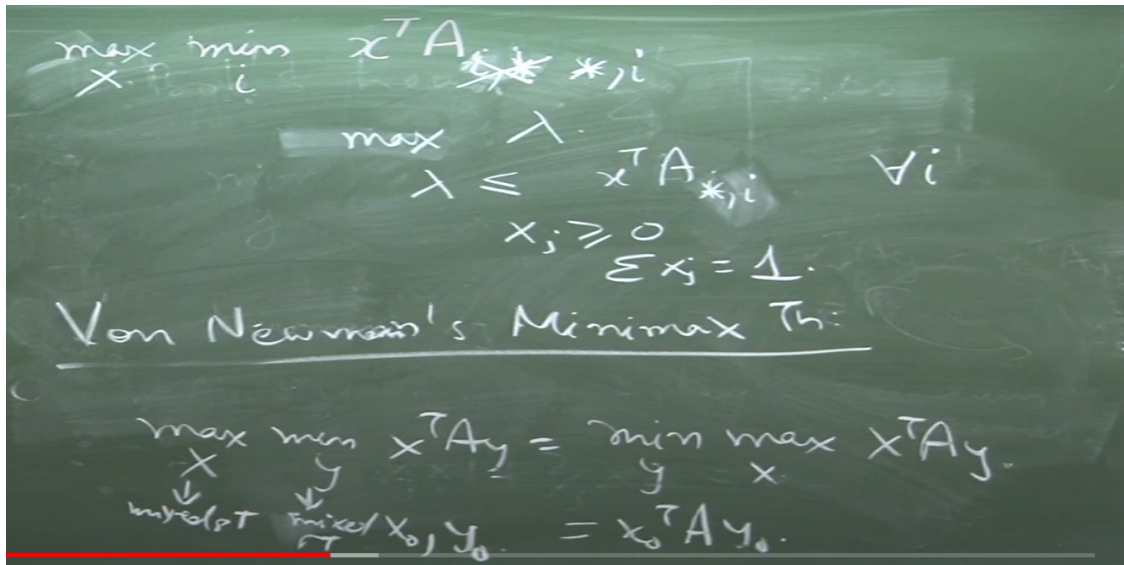 max min xᵀA *,i
x i
max λ.
λ ≤ xᵀA*,i ∀i
xⱼ ≥ 0
Σxⱼ = 1.
Von Newman's Minimax Th:
max min xᵀAy = min max xᵀAy.
x y y x
↓ ↓
mixed st mixed st x₀, y₀. = x₀ᵀAy₀.